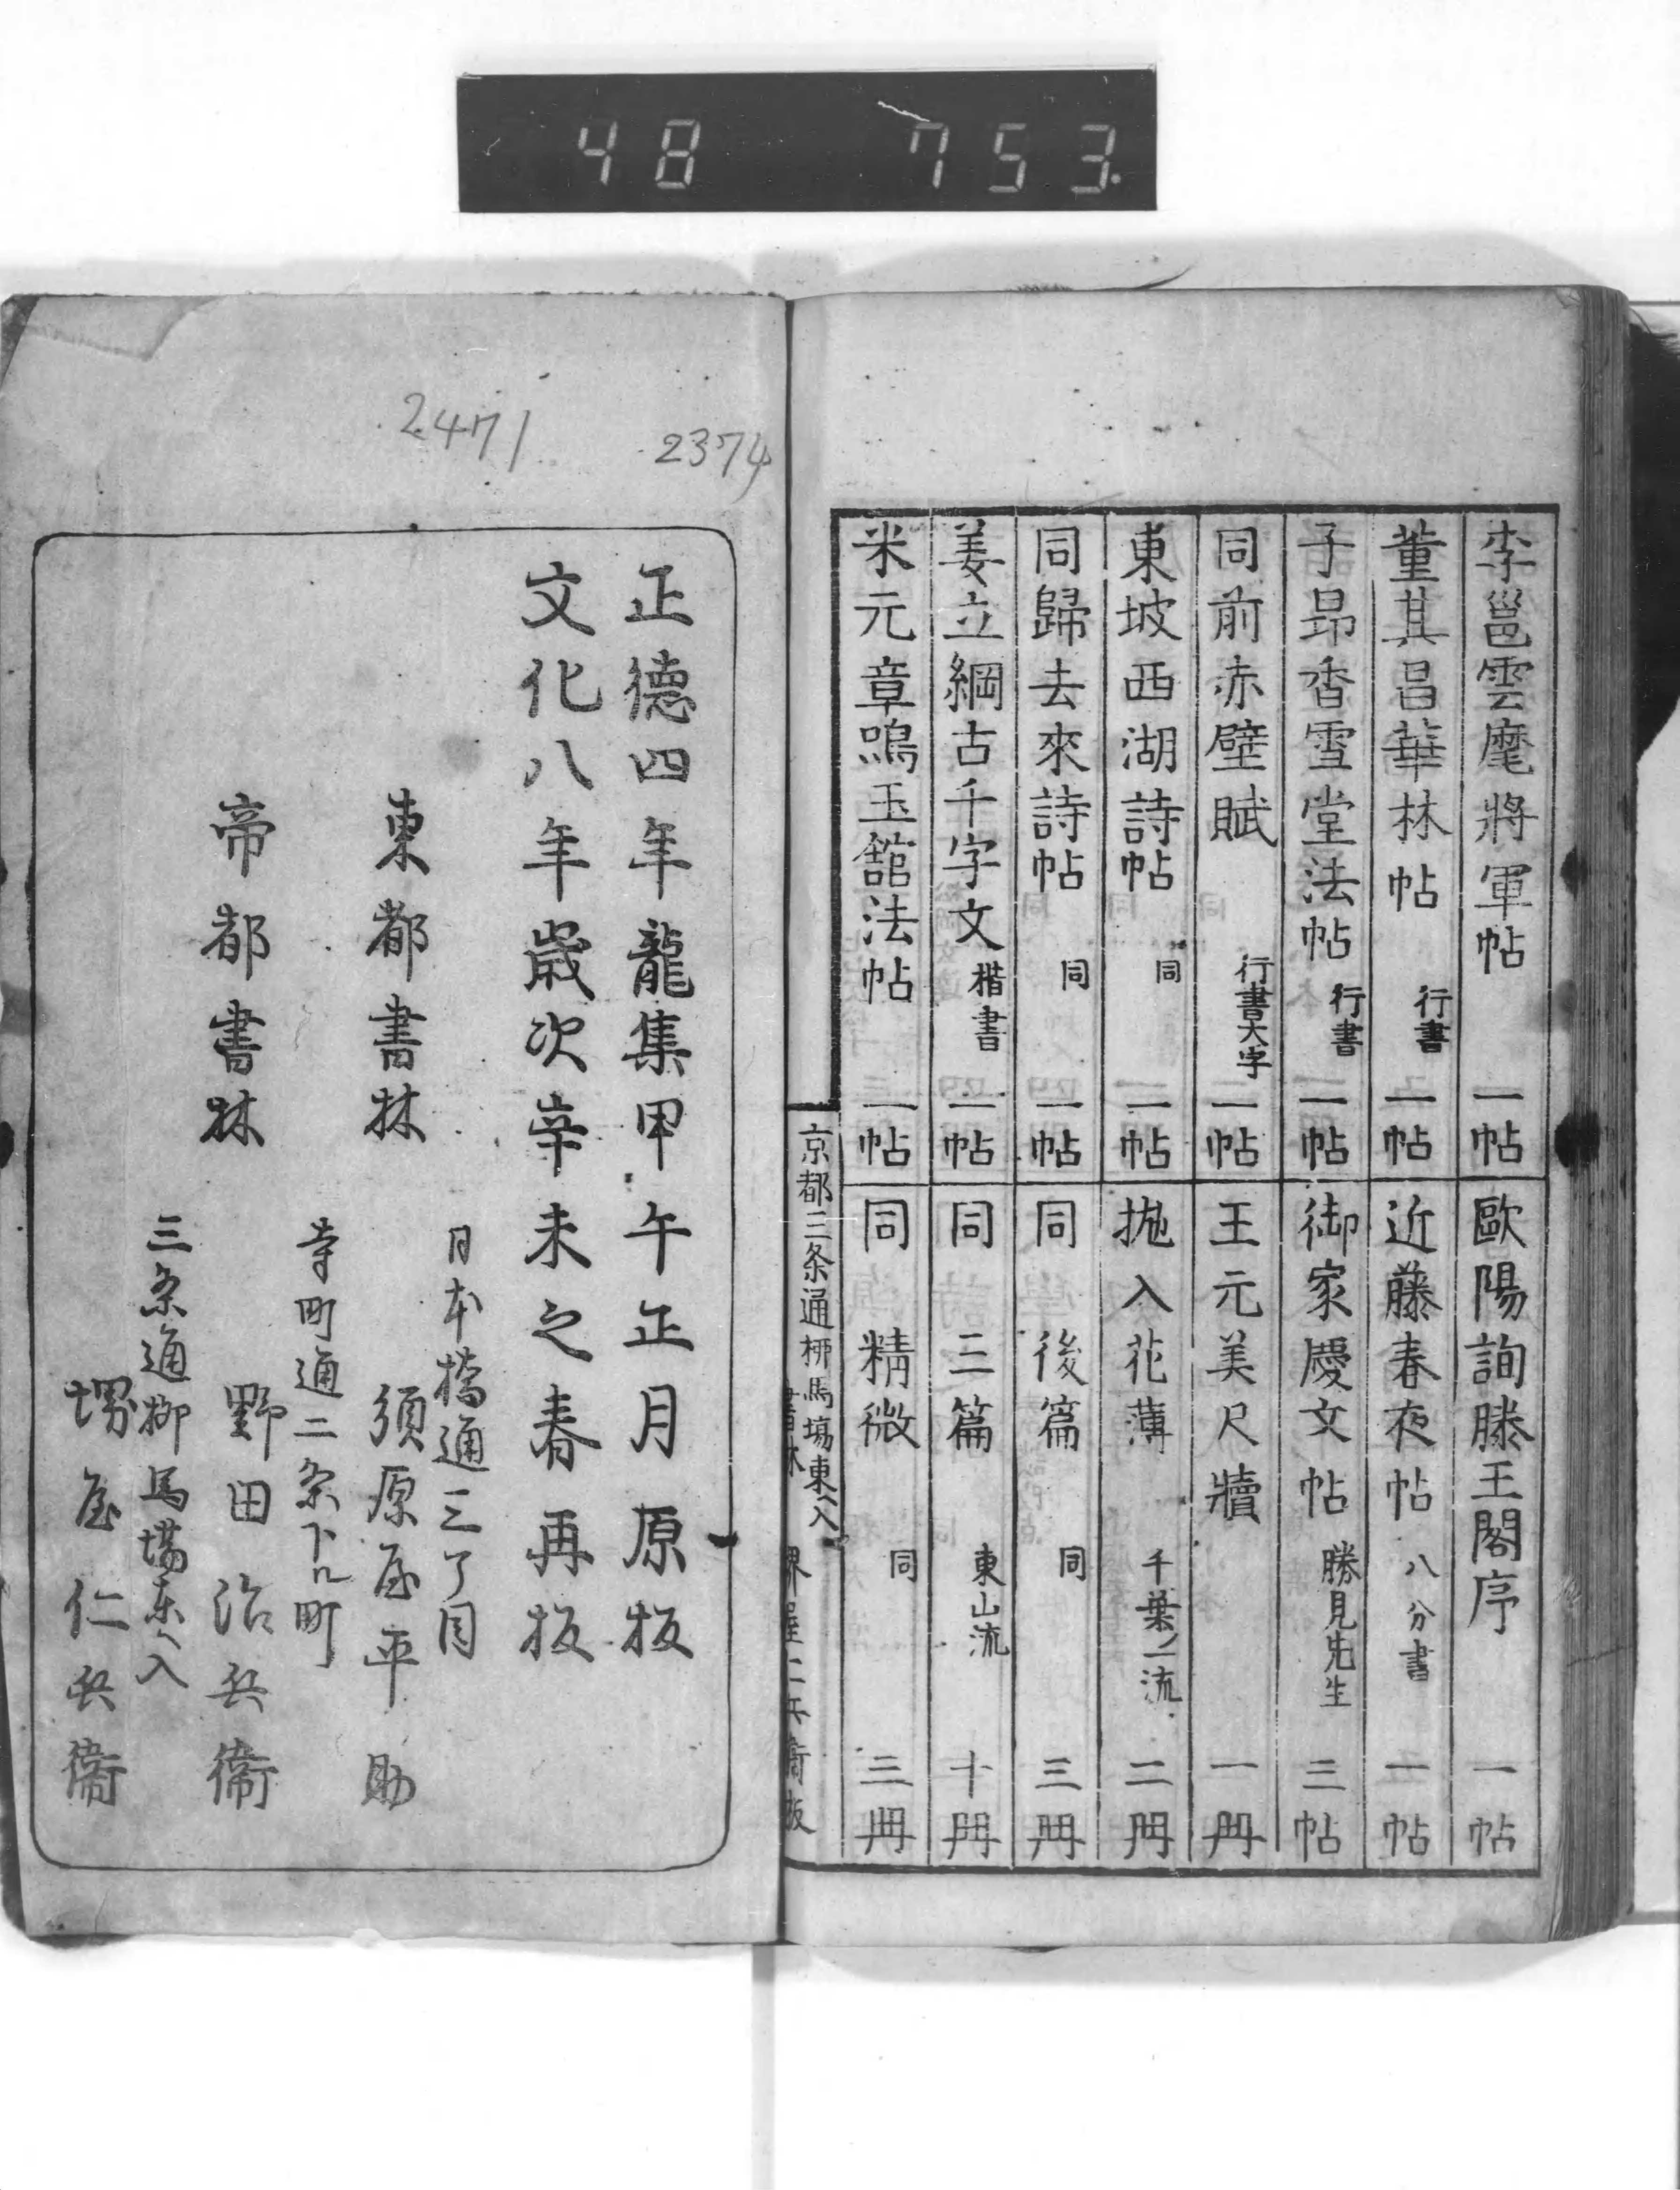 48 753.
李邕雲麾將軍帖 一帖
董其昌華林帖 行書 一帖
子昻香雪堂法帖 行書 一帖
同前赤壁賦 行書大字 一帖
東坡西湖詩帖 同 一帖
同歸去來詩帖 同 一帖
姜立綱古千字文 楷書 一帖
米元章鳴玉舘法帖 一帖
歐陽詢滕王閣序 一帖
近藤春夜帖 八分書 一帖
御家慶文帖 勝見先生 三帖
王元美尺牘 一冊
抛入花薄 千葉ノ流 二冊
同 後篇 同 三冊
同 三篇 東山流 十冊
同 精微 同 三冊
京都三条通栁馬塲東ヘ入
書林 堺屋仁兵衛板
2374
2471
正德四年龍集甲午正月原板
文化八年歲次辛未之春再板
東都書林
日本橋通三丁目
須原屋平助
帝都書林
寺町通二条下ル町
野田治兵衛
三条通柳馬塲東ヘ入
堺屋仁兵衛